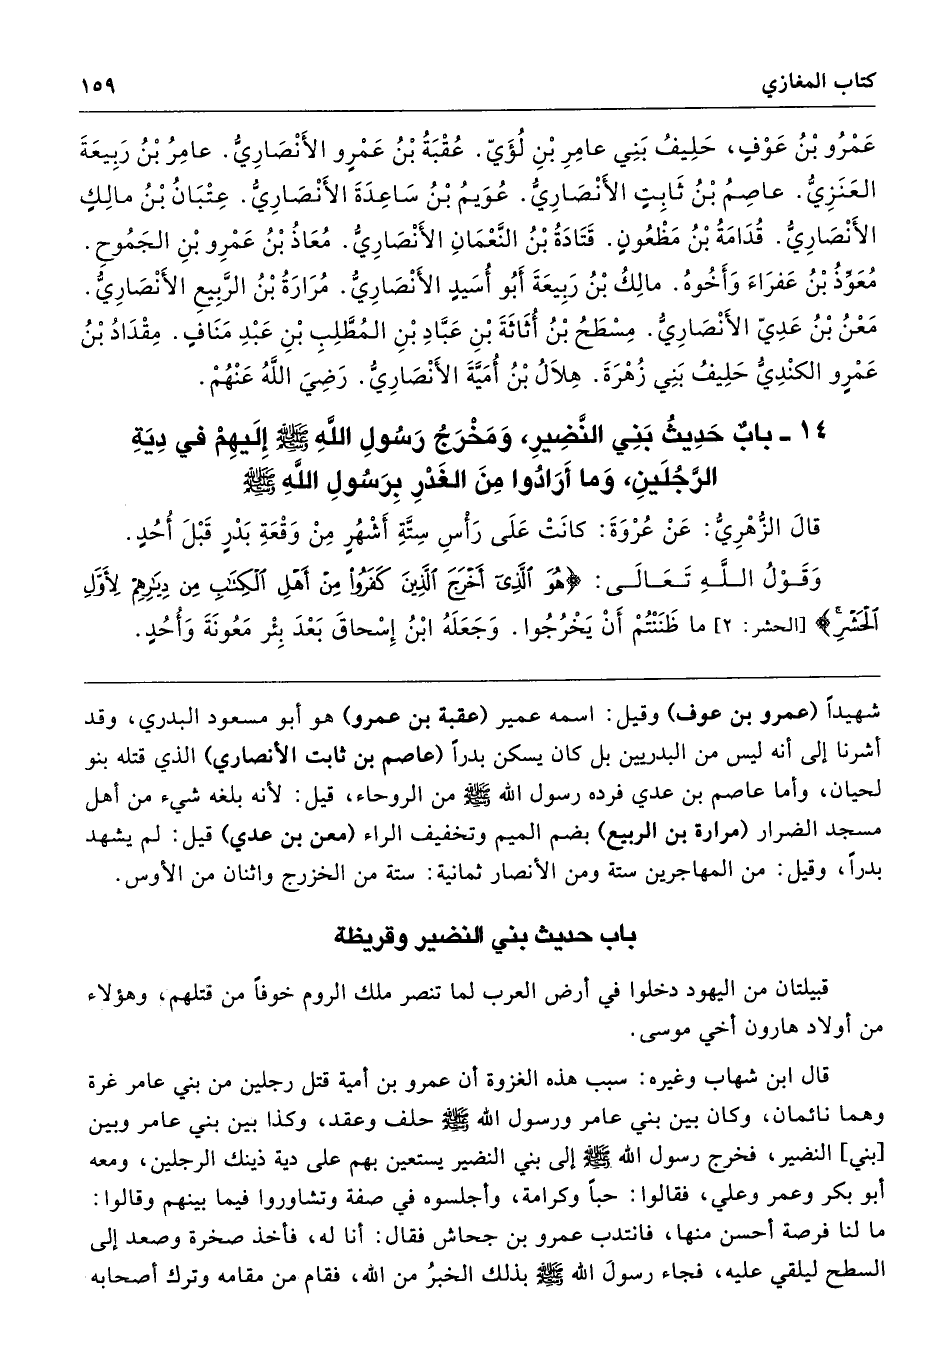 كتاب المغازي ١٥٩
عَمْرُو بْنُ عَوْفٍ، حَلِيفُ بَنِي عامِرِ بْنِ لُؤَيّ. عُقْبَةُ بْنُ عَمْرٍو الأَنْصَارِيُّ. عامِرُ بْنُ رَبِيعَةَ
العَنَزِيُّ. عاصِمُ بْنُ ثَابِتٍ الأَنْصَارِيُّ. عُوَيمُ بْنُ سَاعِدَةَ الأَنْصَارِيُّ. عِتْبَانُ بْنُ مالِكٍ
الأَنْصَارِيُّ. قُدَامَةُ بْنُ مَظْعُونٍ. قَتَادَةُ بْنُ النُّعْمَانِ الأَنْصَارِيُّ. مُعَاذُ بْنُ عَمْرِو بْنِ الجَمُوحِ.
مُعَوِّذُ بْنُ عَفرَاءَ وَأَخُوهُ. مالِكُ بْنُ رَبِيعَةَ أَبُو أُسَيدٍ الأَنْصَارِيُّ. مُرَارَةُ بْنُ الرَّبِيعِ الأَنْصَارِيُّ.
مَعْنُ بْنُ عَدِيّ الأَنْصَارِيُّ. مِسْطَحُ بْنُ أُثَاثَةَ بْنِ عَبَّادِ بْنِ المُطَّلِبِ بْنِ عَبْدِ مَنَافٍ. مِقْدَادُ بْنُ
عَمْرٍو الكِنْدِيُّ حَلِيفُ بَنِي زُهْرَةَ. هِلَالُ بْنُ أُمَيَّةَ الأَنْصَارِيُّ. رَضِيَ اللَّهُ عَنْهُمْ.
١٤ ـ بابٌ حَدِيثُ بَنِي النَّضِيرِ، وَمَخْرَجُ رَسُولِ اللَّهِ ﷺ إِلَيهِمْ في دِيَةِ
الرَّجُلَينِ، وَما أَرَادُوا مِنَ الغَدْرِ بِرَسُولِ اللَّهِ ﷺ
قالَ الزُّهْرِيُّ: عَنْ عُرْوَةَ: كانَتْ عَلَى رَأْسِ سِتَّةِ أَشْهُرٍ مِنْ وَقْعَةِ بَدْرٍ قَبْلَ أُحُدٍ.
وَقَوْلُ اللَّهِ تَعَالَى: ﴿هُوَ ٱلَّذِىٓ أَخْرَجَ ٱلَّذِينَ كَفَرُواْ مِنْ أَهْلِ ٱلْكِتَٰبِ مِن دِيَٰرِهِمْ لِأَوَّلِ
ٱلْحَشْرِۚ﴾ [الحشر: ٢] ما ظَنَنْتُمْ أَنْ يَخْرُجُوا. وَجَعَلَهُ ابْنُ إِسْحاقَ بَعْدَ بِئْرِ مَعُونَةَ وَأُحُدٍ.
شهيداً (عمرو بن عوف) وقيل: اسمه عمير (عقبة بن عمرو) هو أبو مسعود البدري، وقد
أشرنا إلى أنه ليس من البدريين بل كان يسكن بدراً (عاصم بن ثابت الأنصاري) الذي قتله بنو
لحيان، وأما عاصم بن عدي فرده رسول الله ﷺ من الروحاء، قيل: لأنه بلغه شيء من أهل
مسجد الضرار (مرارة بن الربيع) بضم الميم وتخفيف الراء (معن بن عدي) قيل: لم يشهد
بدراً، وقيل: من المهاجرين ستة ومن الأنصار ثمانية: ستة من الخزرج واثنان من الأوس.
باب حديث بني النضير وقريظة
قبيلتان من اليهود دخلوا في أرض العرب لما تنصر ملك الروم خوفاً من قتلهم، وهؤلاء
من أولاد هارون أخي موسى.
قال ابن شهاب وغيره: سبب هذه الغزوة أن عمرو بن أمية قتل رجلين من بني عامر غرة
وهما نائمان، وكان بين بني عامر ورسول الله ﷺ حلف وعقد، وكذا بين بني عامر وبين
[بني] النضير، فخرج رسول الله ﷺ إلى بني النضير يستعين بهم على دية ذينك الرجلين، ومعه
أبو بكر وعمر وعلي، فقالوا: حباً وكرامة، وأجلسوه في صفة وتشاوروا فيما بينهم وقالوا:
ما لنا فرصة أحسن منها، فانتدب عمرو بن جحاش فقال: أنا له، فأخذ صخرة وصعد إلى
السطح ليلقي عليه، فجاء رسولَ الله ﷺ بذلك الخبرُ من الله، فقام من مقامه وترك أصحابه